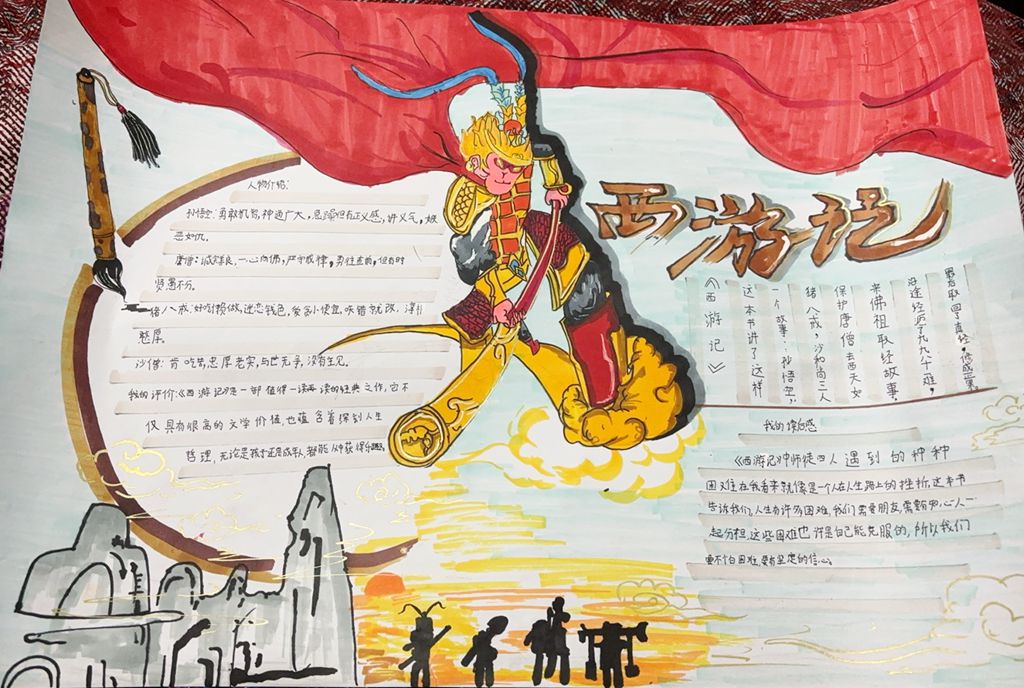 西游记
人物介绍:
孙悟空:勇敢机智,神通广大,急躁但有正义感,讲义气,嫉
恶如仇。
唐僧:诚善良,一心向佛,严守戒律,勇往直前,但有时
贤愚不分。
猪八戒:好吃懒做,迷恋钱色,爱贪小便宜,知错就改,淳朴
憨厚。
沙僧:肯吃苦,忠厚老实,与世无争,没有主见。
我的评价:《西游记》是一部值得一读再读的经典之作,它不
仅具有很高的文学价值,也蕴含着深刻人生
哲理,无论是孩子还是成年人,都能从中获得乐趣。
《西游记》
这本书讲了这样
一个故事:孙悟空,
猪八戒,沙和尚三人
保护唐僧去西天如
来佛祖取经故事,
沿途经历了九九八十一难,
最后取回了真经,修成正果。
我的读后感
《西游记》中师徒四人遇到的种种
困难在我看来就像是一个人在人生路上的挫折,这本书
告诉我们,人生有许多困难,我们需要朋友,需要知心人一
起分担,这些困难也许是自己能克服的,所以我们
要不怕困难,要有坚定的信心。